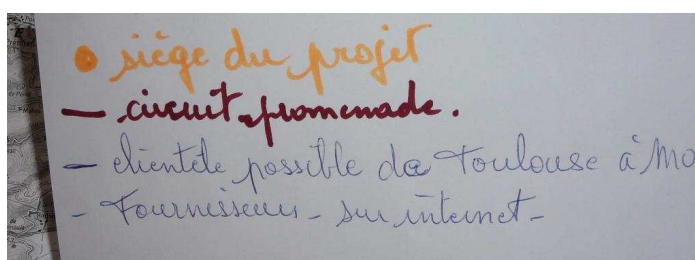 • siège du projet
— circuit promenade.
- clientèle possible de Toulouse à Mo
- Fournisseurs - sur internet -